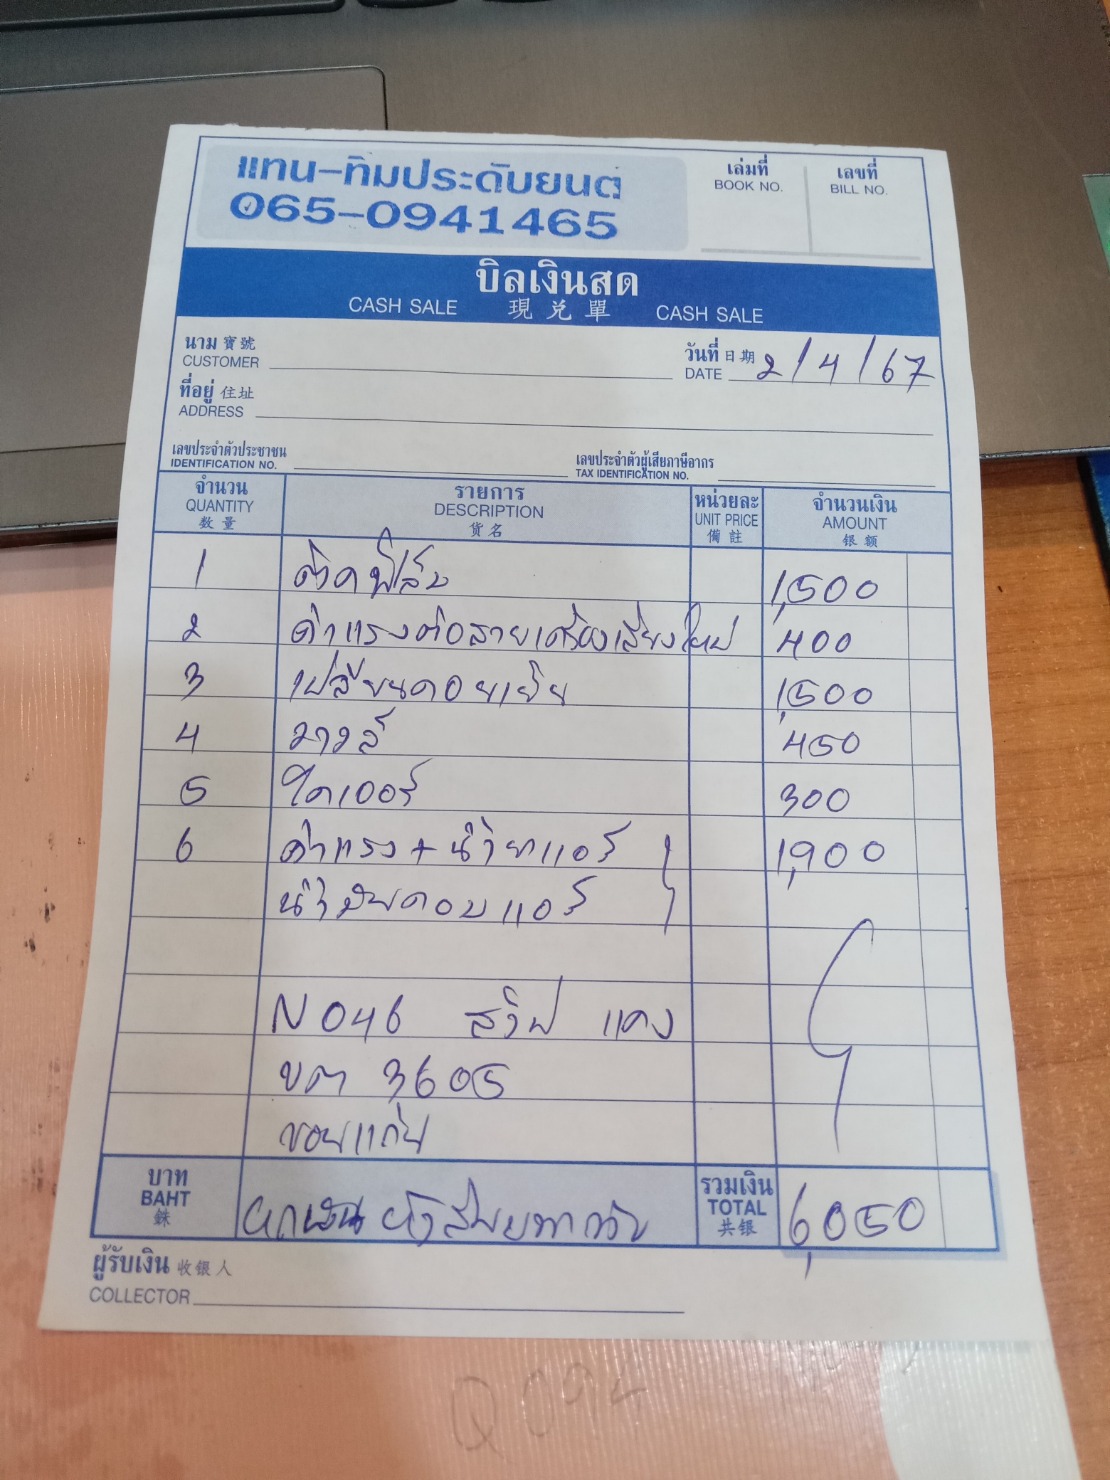 แทน-ทิมประดับยนต์
065-0941465
เล่มที่
BOOK NO.
เลขที่
BILL NO.
บิลเงินสด
CASH SALE 現兑單 CASH SALE
นาม 寶號
CUSTOMER
วันที่ 日期 2/4/67
DATE
ที่อยู่ 住址
ADDRESS
เลขประจำตัวประชาชน
IDENTIFICATION NO.
เลขประจำตัวผู้เสียภาษีอากร
TAX IDENTIFICATION NO.
จำนวน รายการ หน่วยละ จำนวนเงิน
QUANTITY DESCRIPTION UNIT PRICE AMOUNT
数量 货名 備註 银额
1 ติดฟิล์ม 1,500
2 ค่าแรงต่อสายเครื่องเสียงใหม่ 400
3 เปลี่ยนคอยเย็น 1,500
4 วาวล์ 450
5 ไดเออร์ 300
6 ค่าแรง + น้ำยาแอร์ 1,900
น้ำมันคอมแอร์
N046 สวิฟ แดง
ขต 3605
ขอนแก่น
บาท
BAHT
銖
หกพันห้าสิบบาทถ้วน
รวมเงิน
TOTAL 6,050
共银
ผู้รับเงิน 收银人
COLLECTOR
Q094